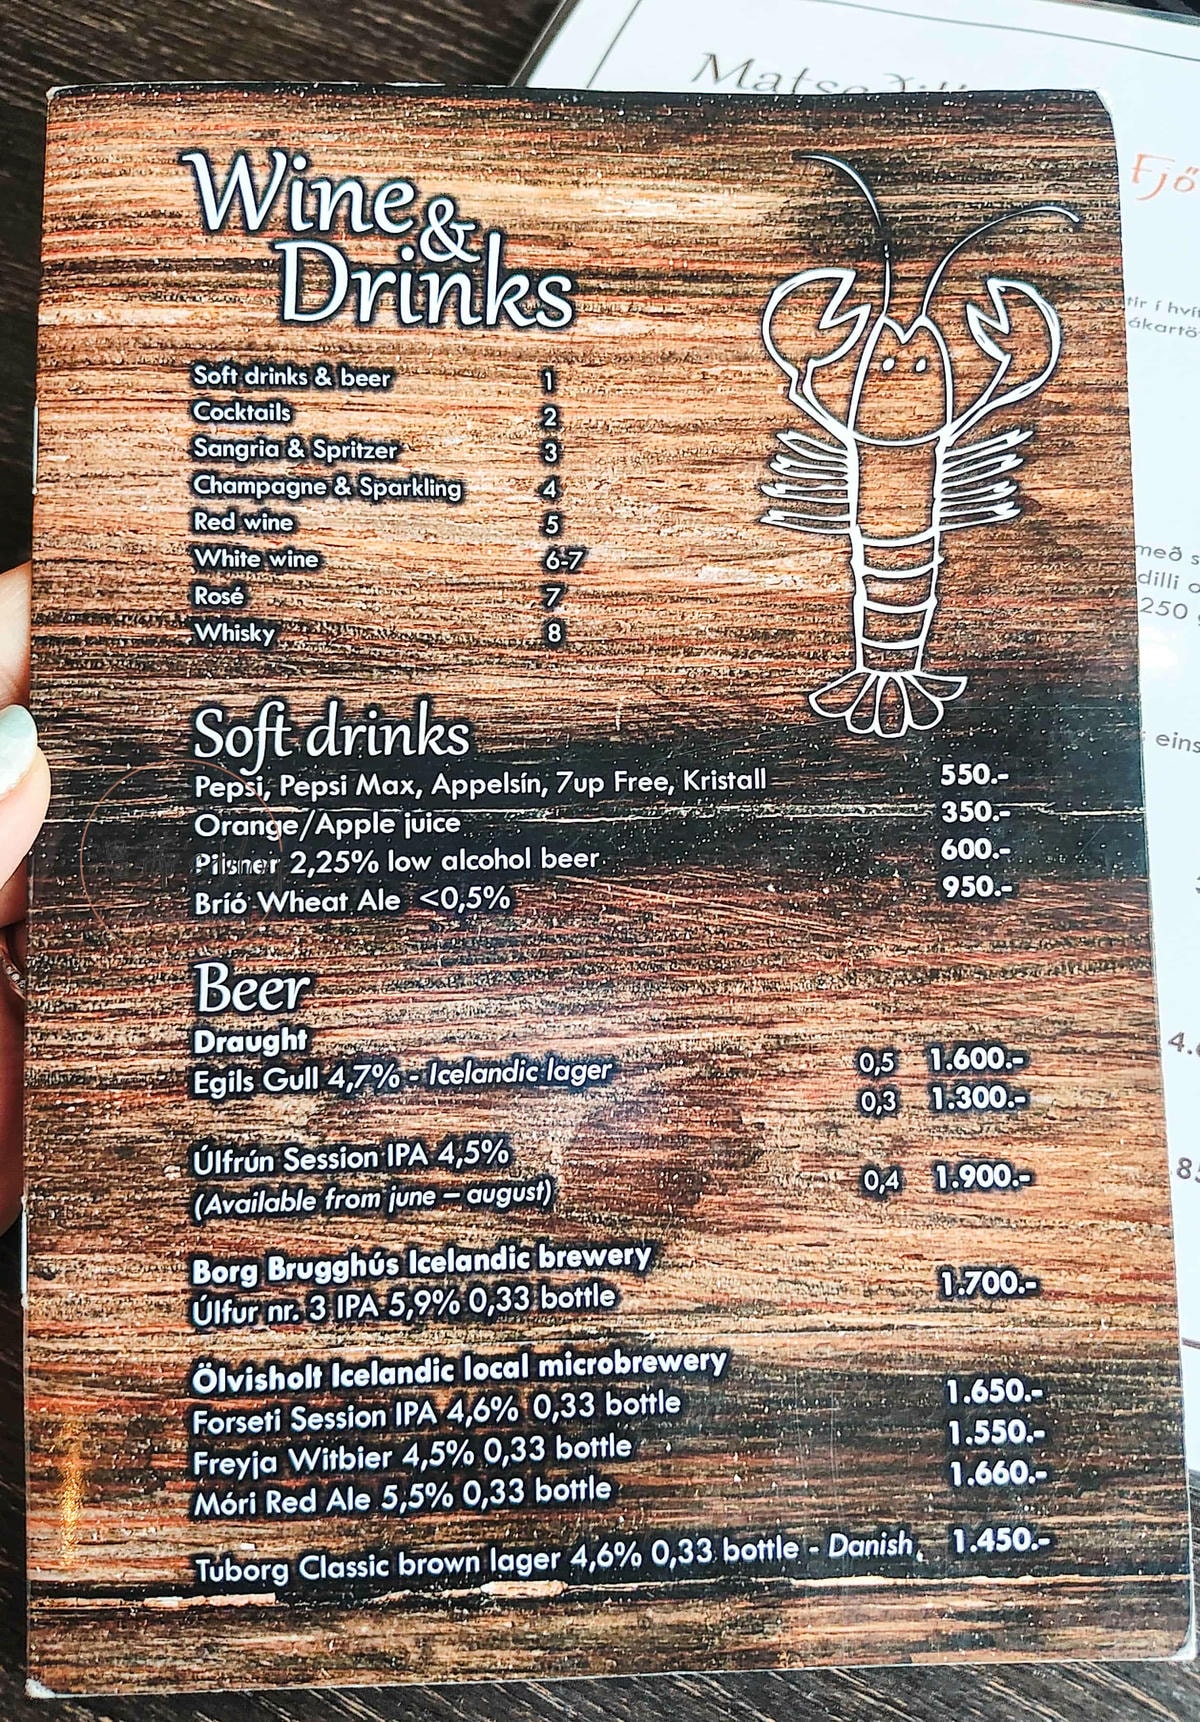 Matseðill
Fjö
tir í hvít
ákartö
með s
dilli o
250 g
eins
4.
85
Wine &
Drinks
Soft drinks & beer 1
Cocktails 2
Sangria & Spritzer 3
Champagne & Sparkling 4
Red wine 5
White wine 6-7
Rosé 7
Whisky 8
Soft drinks
Pepsi, Pepsi Max, Appelsín, 7up Free, Kristall 550.-
Orange/Apple juice 350.-
Pilsner 2,25% low alcohol beer 600.-
Bríó Wheat Ale <0,5% 950.-
Beer
Draught
Egils Gull 4,7% - Icelandic lager 0,5 1.600.-
0,3 1.300.-
Úlfrún Session IPA 4,5%
(Available from june – august) 0,4 1.900.-
Borg Brugghús Icelandic brewery
Úlfur nr. 3 IPA 5,9% 0,33 bottle 1.700.-
Ölvisholt Icelandic local microbrewery
Forseti Session IPA 4,6% 0,33 bottle 1.650.-
Freyja Witbier 4,5% 0,33 bottle 1.550.-
Móri Red Ale 5,5% 0,33 bottle 1.660.-
Tuborg Classic brown lager 4,6% 0,33 bottle - Danish 1.450.-